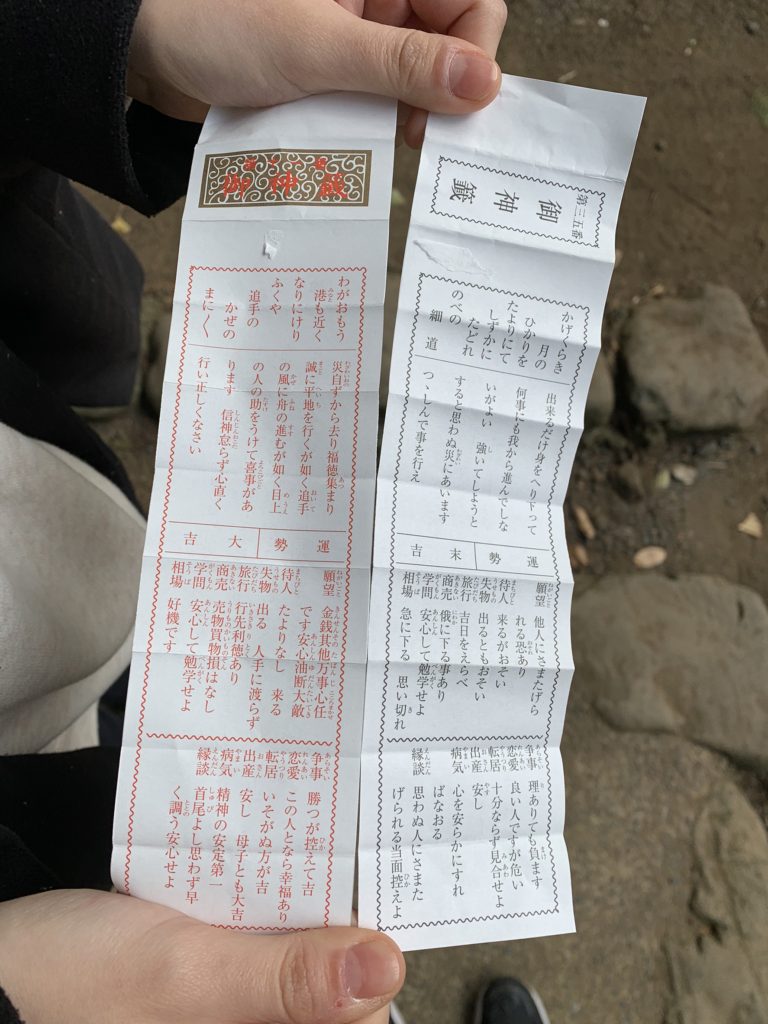 御神籤
わがおもう
港も近く
なりにけり
ふくや
追手の
かぜの
まに〱
災自ずから去り福徳集まり
誠に平地を行くが如く追手
の風に舟の進むが如く目上
の人の助をうけて喜事があ
ります　信神怠らず心直く
行い正しくなさい
運勢　大吉
願望　金銭其他万事心任
です安心油断大敵
待人　たよりなし　来る
失物　出る　人手に渡らず
旅行　行先利徳あり
商売　売物買物損はなし
学問　安心して勉学せよ
相場　好機です
争事　勝つが控えて吉
恋愛　この人となら幸福あり
転居　いそがぬ方が吉
出産　安し　母子とも大吉
病気　精神の安定第一
縁談　首尾よし思わず早
く調う安心せよ
第三五番
御神籤
かげくらき
月の
ひかりを
たよりにて
しずかに
たどれ
のべの
細道
出来るだけ身をへり下って
何事にも我から進んでしな
いがよい　強いてしようと
すると思わぬ災にあいます
つゝしんで事を行え
運勢　末吉
願望　他人にさまたげら
れる恐あり
待人　来るがおそい
失物　出るともおそい
旅行　吉日をえらべ
商売　俄に下る事あり
学問　安心して勉学せよ
相場　急に下る　思い切れ
争事　理ありても負ます
恋愛　良い人ですが危い
転居　十分ならず見合せよ
出産　安し
病気　心を安らかにすれ
ばなおる
縁談　思わぬ人にさまた
げられる当面控えよ